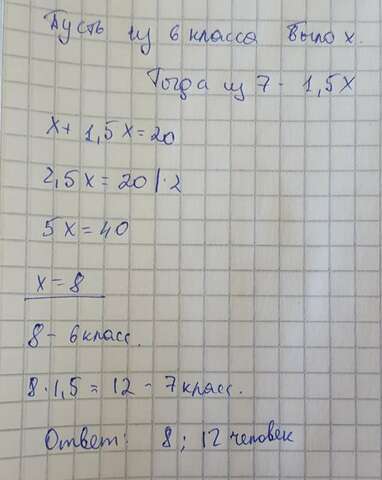 Пусть из 6 класса было x.
Тогда из 7 - 1,5x
x + 1,5x = 20
2,5x = 20 |·2
5x = 40
x = 8
8 - 6 класс.
8 · 1,5 = 12 - 7 класс.
Ответ: 8 ; 12 человек